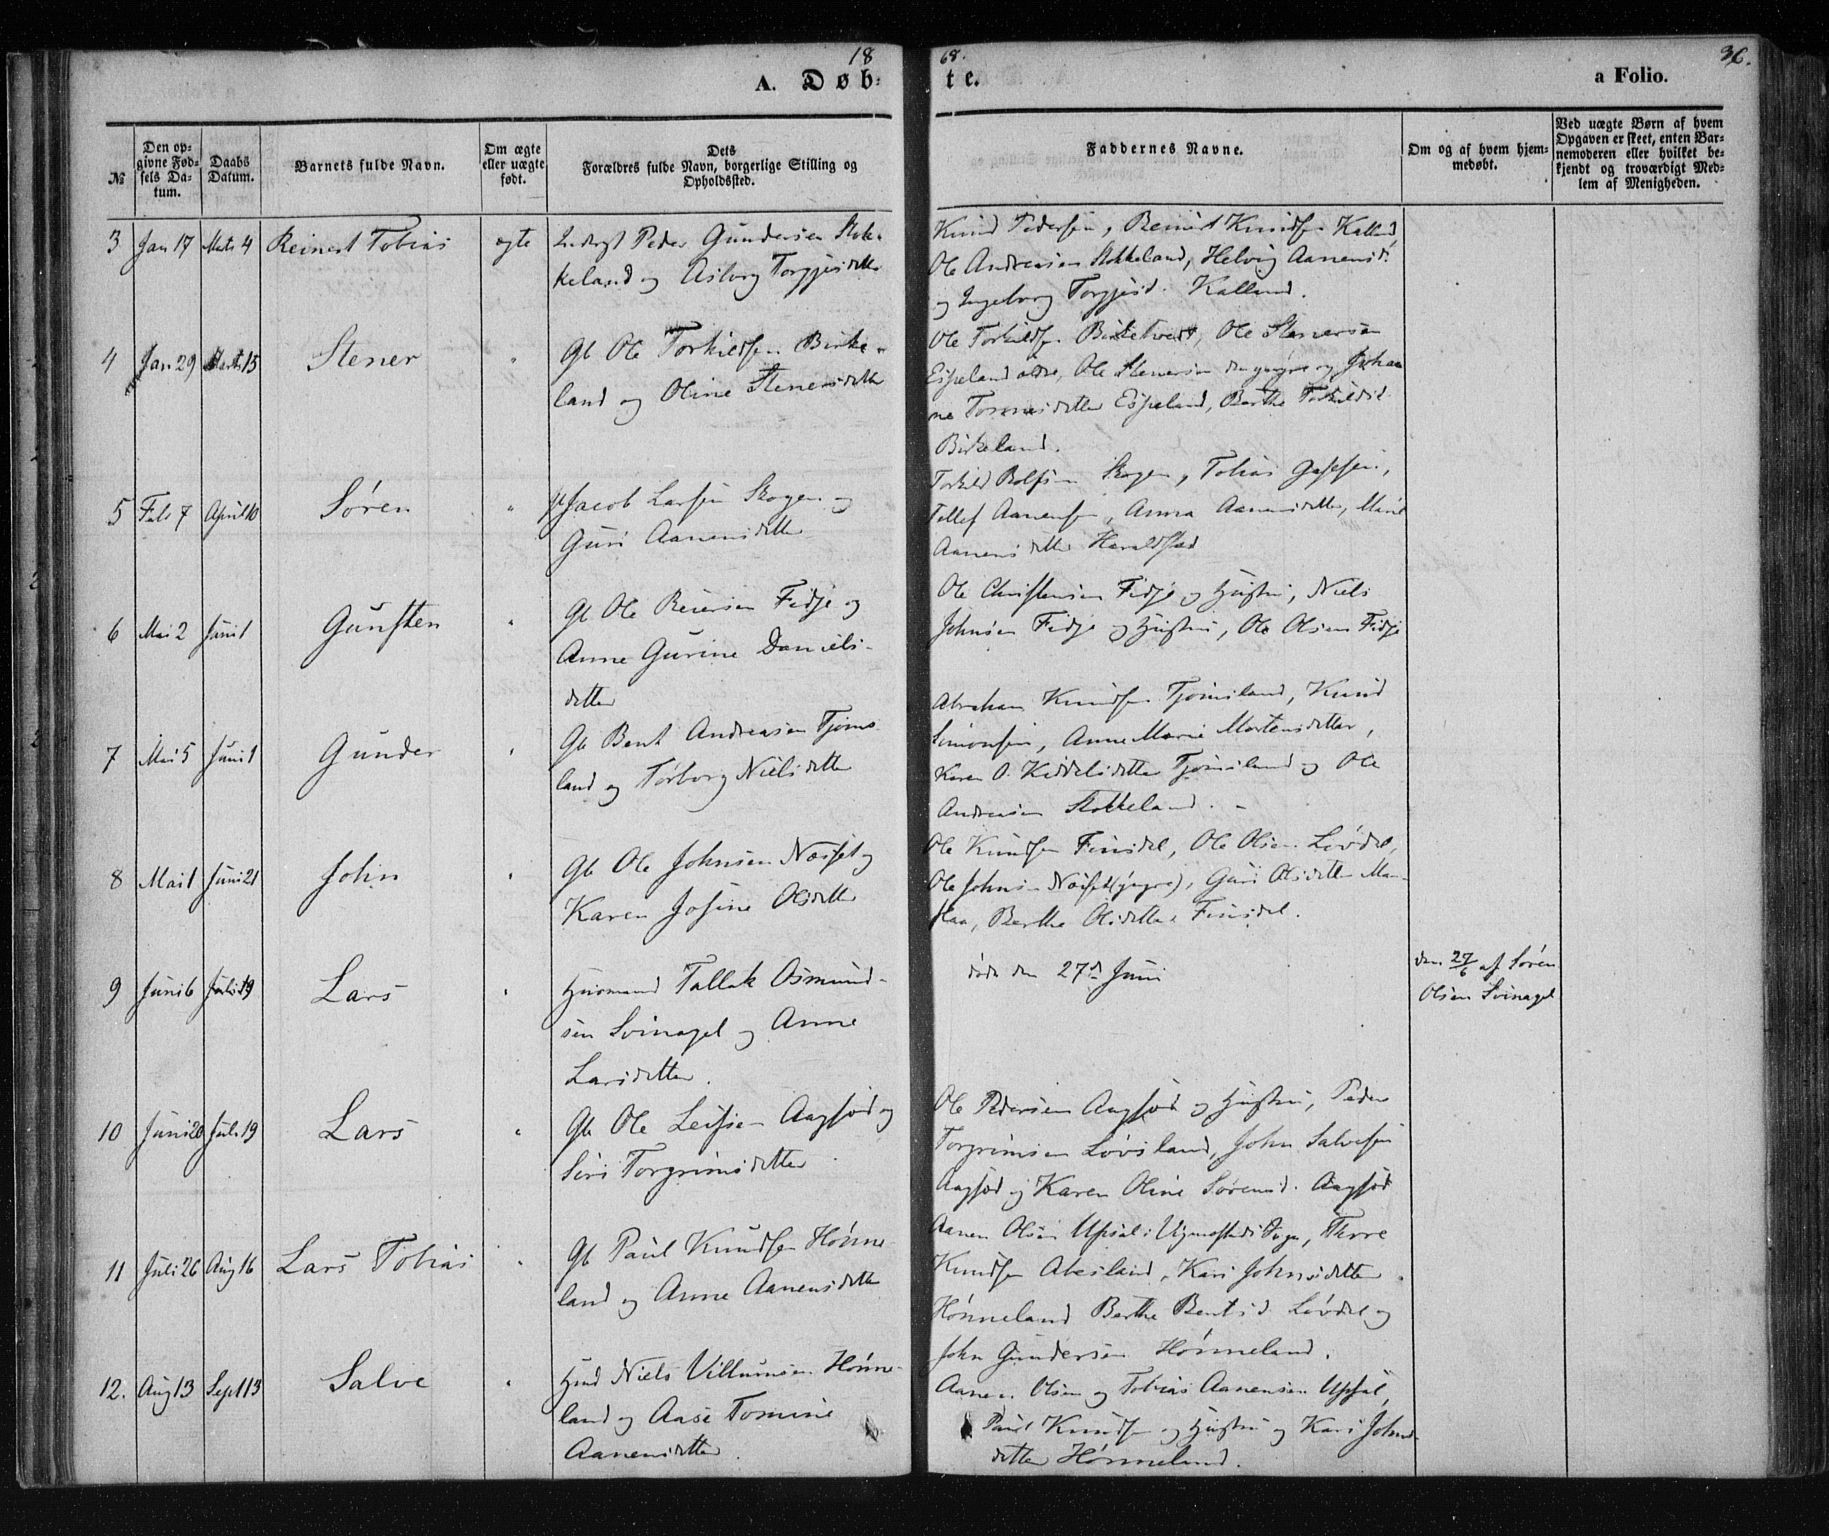 1868.
36.
A. Døbte.
a Folio.
№
Den opgivne Fødsels Datum.
Daabs Datum.
Barnets fulde Navn.
Om ægte eller uægte født.
Dets Forældres fulde Navn, borgerlige Stilling og Opholdssted.
Faddernes Navne.
Om og af hvem hjemmedøbt.
Ved uægte Børn af hvem Opgaven er skeet, enten Barnemoderen eller hvilket bekjendt og troværdigt Medlem af Menigheden.
3 Jan 17 Marts 4 Reinert Tobias ægte
Inderst Peder Gundersen Stok-
keland og Asborg Torgjusdatter
Knud Pedersen, Reinert Knudsen Kalland
Ole Andreasen Stokkeland, Helvig Aanensd.
og Ingeborg Torgjusd. Kalland.
4 Jan 29 Marts 15 Stener "
Gb Ole Torkildsen Birke-
land og Oline Stenersdatter
Ole Torkildsen Birketveit, Ole Stenersen
Espeland ældre, Ole Stenersen den yngre og Johan
ne Tomasdatter Espeland, Berthe Torkildsd
Birkeland.
5 Feb 7 April 10 Søren "
Jacob Larsen Skogen og
Guri Aanensdatter
Torkild Rolfsen Skogen, Tobias
Tellef Aanensen, Anna Aanensdatter, Marie
Aanensdatter Haraldstad
6 Mai 2 Juni 1 Gunsten "
Gb Ole Reiersen Fidje og
Anne Gurine Daniels-
datter
Ole Christensen Fidje og Hustru, Niels
Johnsen Fidje og Hustru, Ole Olsen Fidje
7 Mai 5 Juni 1 Gunder "
Gb Bent Andreasen Tjoms
land og Torborg Nielsdatter
Abraham Knudsen Tjomsland, Knud
Simonsen, Anne Marie Mortensdatter,
Karen O. Kiddelsdatter Tjomsland og Ole
Andreasen Stokkeland.
8 Mai 1 Juni 21 John "
Gb Ole Johnsen Næset og
Karen Josine Olsdatter
Ole Knudsen Finsdal, Ole Olsen Løvdal,
Ole Johnsen Næset (yngre), Guri Olsdatter
Berthe Olsdatter Finsdal.
9 Juni 6 Juli 19 Lars "
Husmand Tallak Osmund-
sen Svinagel og Anne
Larsdatter.
døde den 27de Juni
den 27/6 af Søren
Olsen Svinagel
10 Juni 20 Juli 19 Lars "
Gb Ole Leifsen Aagsod og
Siri Torgrimsdatter
Ole Pedersen Aagsod og Hustru, Peder
Torgrimsen Løvsland, John Salvesen
Aagsod og Karen Oline Sørensd. Aagsod
11 Juli 26 Aug 16 Lars Tobias "
Gb Paul Knudsen Hønne
land og Anne Aanensdatter
Aanen Olsen Upsal i Vigmostads Sogn, Thore
Knudsen Abesland, Kari Johnsdatter
Hønneland Berthe Bentsd. Løvdal og
John Gundersen Hønneland.
12. Aug 13 Sept 13 Salve "
Hmd Niels Villumsen Hønne-
land og Aase Tomine
Aanensdatter.
Aanen Olsen og Tobias Aanensen Upsal,
Paul Knudsen og Hustru og Kari Johns
datter Hønneland.